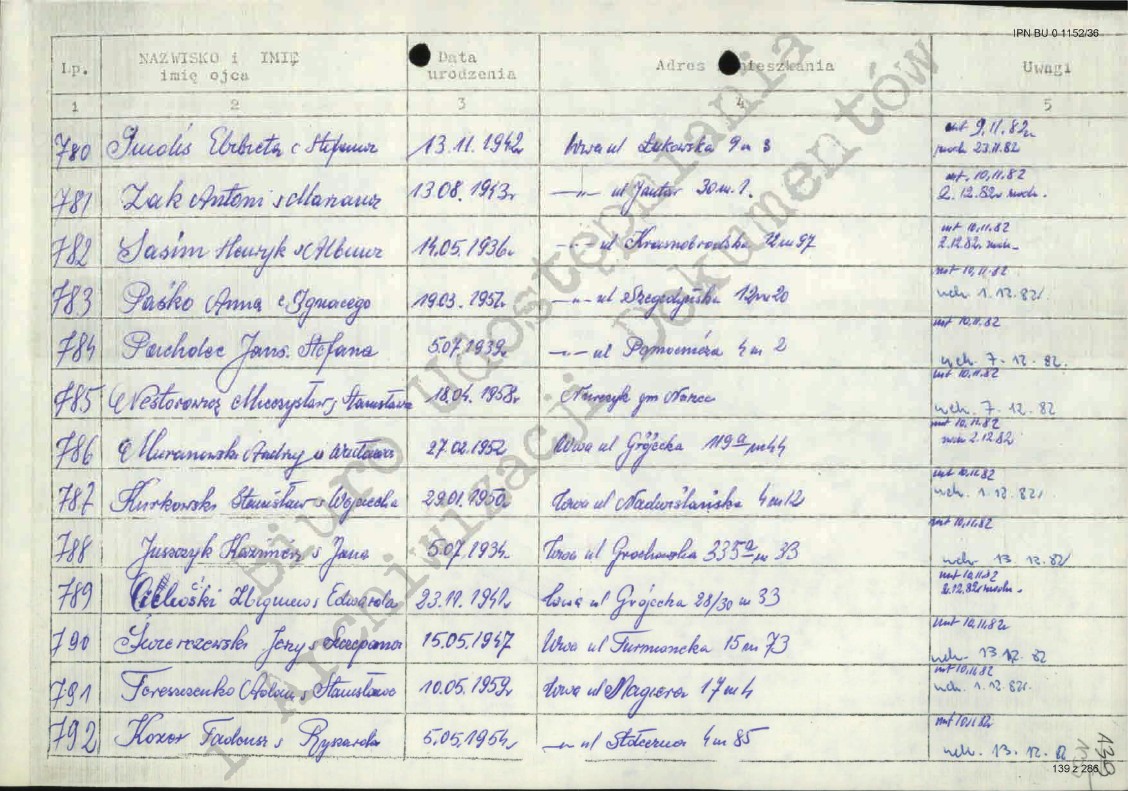 IPN BU 0 1152/36
Lp. NAZWISKO i IMIĘ imię ojca Data urodzenia Adres mieszkania Uwagi
1 2 3 4 5
780 Elżbieta c Stefana 13.11.1942r W-wa ul Łukowska 9 m 8 int 9.11.82r 23.11.82
781 Żak Antoni s Mariana 13.08.1943r —„— ul Jantar 30 m. int. 10.11.82 2.12.82r
782 Sasim Henryk s Albina 14.05.1936r —„— ul Krasnobrodzka m 97 int 10.11.82 2.12.82
783 Paśko Anna c. Ignacego 19.03.1957r —„— ul Szegedyńska 12 m 20 int 10.11.82 uch. 1.12.82r
784 Parcholec s. Stefana 5.07.1939r —„— ul Pomocnicza 4 m 2 int 10.11.82 uch. 7.12.82.
785 Nestorowicz Mieczysław s Stanisława 18.04.1958r gm int 10.11.82 uch. 7.12.82
786 Muranowski Andrzej s Wacława 27.02.1952 W-wa ul Grójecka 119a m 44 int 10.11.82 2.12.82
787 Kurkowski Stanisław s Wojciecha 29.01.1950r W-wa ul Nadwiślańska 4 m 12 int 10.11.82 uch. 1.12.82r
788 Juszczyk Kazimierz s Jana 5.07.1934r W-wa ul Grochowska 335a m 33 int 10.11.82 uch. 13.12.82r
789 Zbigniew s Edwarda W-wa ul Grójecka 28/30 m 33 int 10.11.82 2.12.82r
790 Świerczewski Jerzy s Szczepana 15.05.1947 W-wa ul Turmoncka 15 m 73 int 10.11.82r uch. 13.12.82
791 Adam s Stanisława 10.05.1959r W-wa ul Magiera 17 m 4 int 10.11.82 uch. 1.12.82r.
792 Kozer Tadeusz s Ryszarda 5.05.1954r —„— ul Stołeczna 4 m 85 int 10.11.82 uch. 13.12.82
Biuro Udostępniania
i Archiwizacji Dokumentów
139
139 z 286